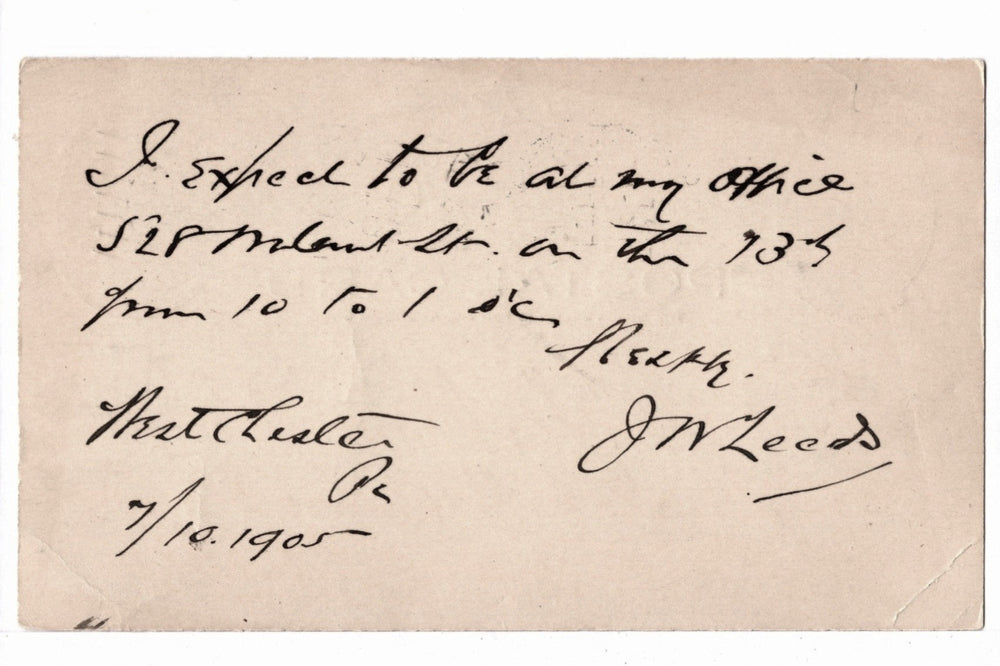 I expect to be at my office
528 Walnut St. on the 13th
from 10 to 1 o'c
J W Leeds
West Chester
Pa
7/10.1905